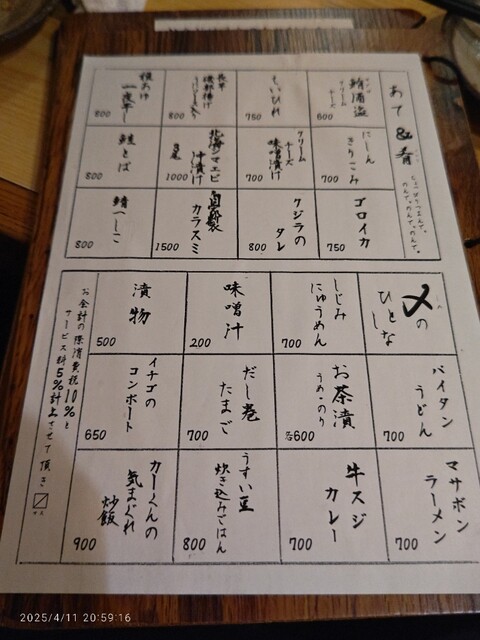 あて&肴
鮪酒盗
クリーム
チーズ
600
もいひれ
750
長芋
磯部揚げ
800
一夜干し
800
にしん
きりこみ
700
クリーム
チーズ
味噌漬け
700
北海シマエビ
沖漬け
1000
鮭とば
800
ゴロイカ
750
クジラの
タレ
800
自家製
カラスミ
1500
鯖へしこ
800
〆の
ひとしな
しじみ
にゅうめん
700
味噌汁
200
漬物
500
パイタン
うどん
700
お茶漬
うめ・のり
各600
だし巻
たまご
700
イチゴの
コンポート
650
マサボン
ラーメン
700
牛スジ
カレー
700
うすい豆
炊き込みごはん
800
カーくんの
気まぐれ
炒飯
900
お会計の際消費税10%と
サービス料5%計上させて頂き〼
2025/4/11 20:59:16